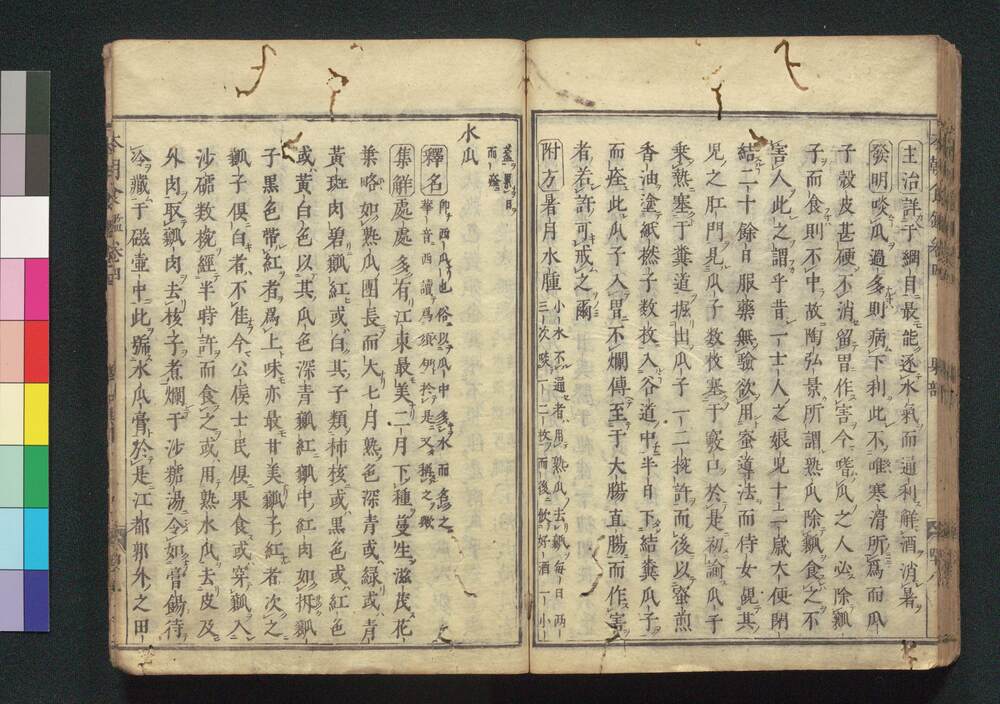 主治詳于綱目最能逐水氣而通利解酒消暑
發明啖瓜過多則病下利此不唯寒滑所爲而瓜
子殼皮甚硬不消留胃作害今嗜瓜之人必除瓤
子而食則不中故陶弘景所謂熟瓜除瓤食之不
害人此之謂乎昔一士人之娘兒十二歲大便閉
結二十餘日服藥無驗欲用蜜導法而侍女覘其
兒之肛門見瓜子數枚塞于竅口於是初論瓜子
乘熱塞于糞道掘出瓜子一二椀許而後以蜜煎
香油塗紙撚子數枚入谷道中半日下結糞瓜子
而痊此瓜子入胃不爛傳至于大腸直腸而作害
者若許可戒之爾
附方暑月水腫小水不通者用熟瓜去瓤每日兩
三次啖一二枚而後飲好酒一小
盞累日
而痊
水瓜
釋名卽西瓜也俗以瓜中多水而名之
華音西讀爲須於是又稱之歟
集解處處多有江東最美二月下種蔓生滋茂花
葉略如熟瓜團長而大七月熟色深青或綠或青
黃斑肉碧瓤紅或白其子類柿核或黑色或紅色
或黃白色以其瓜色深青瓤紅瓤中紅肉如
子黑色帶紅者爲上味亦最甘美瓤子紅者次之
瓤子俱白者不佳今公侯士民俱果食或穿瓤入
沙糖數椀經半時許而食之或用熟水瓜去皮及
外肉取瓤肉去核子煮爛于沙糖湯令如膏餳待
冷藏于磁壷中此號水瓜膏於是江都郭外之田